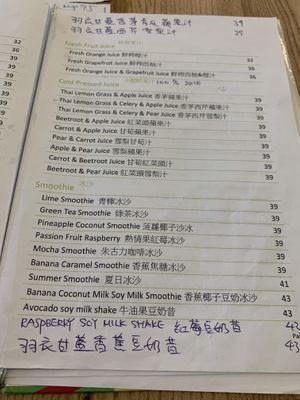 羽衣甘藍香茅青瓜蘋果汁 39
羽衣甘藍西芹雪梨汁 39
Fresh Fruit Juice 鮮榨果汁
Fresh Orange Juice 鮮榨橙汁 32
Fresh Grapefruit Juice 鮮榨西柚汁 36
Fresh Orange Juice & Grapefruit Juice 鮮榨西柚&橙汁 36
Cold Pressed Juice
Thai Lemon Grass & Apple Juice 香茅蘋果汁 39
Thai Lemon Grass & Celery & Apple Juice 香茅西芹蘋果汁 39
Thai Lemon Grass & Celery & Pear Juice 香茅西芹雪梨汁 39
Beetroot & Apple Juice 紅菜頭蘋果汁 39
Carrot & Apple Juice 甘荀蘋果汁 39
Pear & Carrot Juice 雪梨甘荀汁 39
Apple & Pear Juice 雪梨蘋果汁 39
Carrot & Beetroot Juice 甘荀紅菜頭汁 39
Beetroot & Pear Juice 紅菜頭雪梨汁 39
Smoothie 冰沙
Lime Smoothie 青檸冰沙 39
Green Tea Smoothie 綠茶冰沙 39
Pineapple Coconut Smoothie 菠蘿椰子沙冰 39
Passion Fruit Raspberry 熱情果紅莓冰沙 39
Mocha Smoothie 朱古力咖啡冰沙 39
Banana Caramel Smoothie 香蕉焦糖冰沙 39
Summer Smoothie 夏日冰沙 41
Banana Coconut Milk Soy Milk Smoothie 香蕉椰子豆奶冰沙 43
Avocado soy milk shake 牛油果豆奶昔 43
RASPBERRY SOY MILK SHAKE 紅莓豆奶昔 43
羽衣甘藍香蕉豆奶昔 43